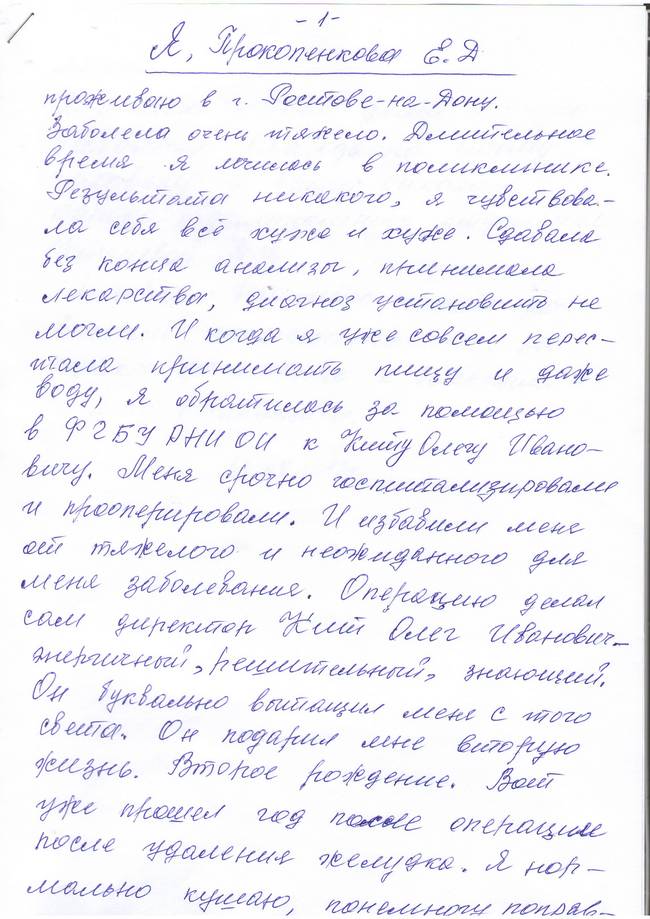 -1-
Я, Прокопенкова Е.Д
проживаю в г. Ростове-на-Дону.
Заболела очень тяжело. Длительное
время я лечилась в поликлинике.
Результата никакого, я чувствова-
ла себя всё хуже и хуже. Сдавала
без конца анализы, принимала
лекарства, диагноз установить не
могли. И когда я уже совсем перес-
тала принимать пищу и даже
воду, я обратилась за помощью
в ФГБУ РНИОИ к Киту Олегу Ивано-
вичу. Меня срочно госпитализировали
и прооперировали. И избавили меня
от тяжелого и неожиданного для
меня заболевания. Операцию делал
сам директор Кит Олег Иванович-
энергичный, решительный, знающий.
Он буквально вытащил меня с того
света. Он подарил мне вторую
жизнь. Второе рождение. Вот
уже прошел год после операции
после удаления желудка. Я нор-
мально кушаю, понемногу поправ-